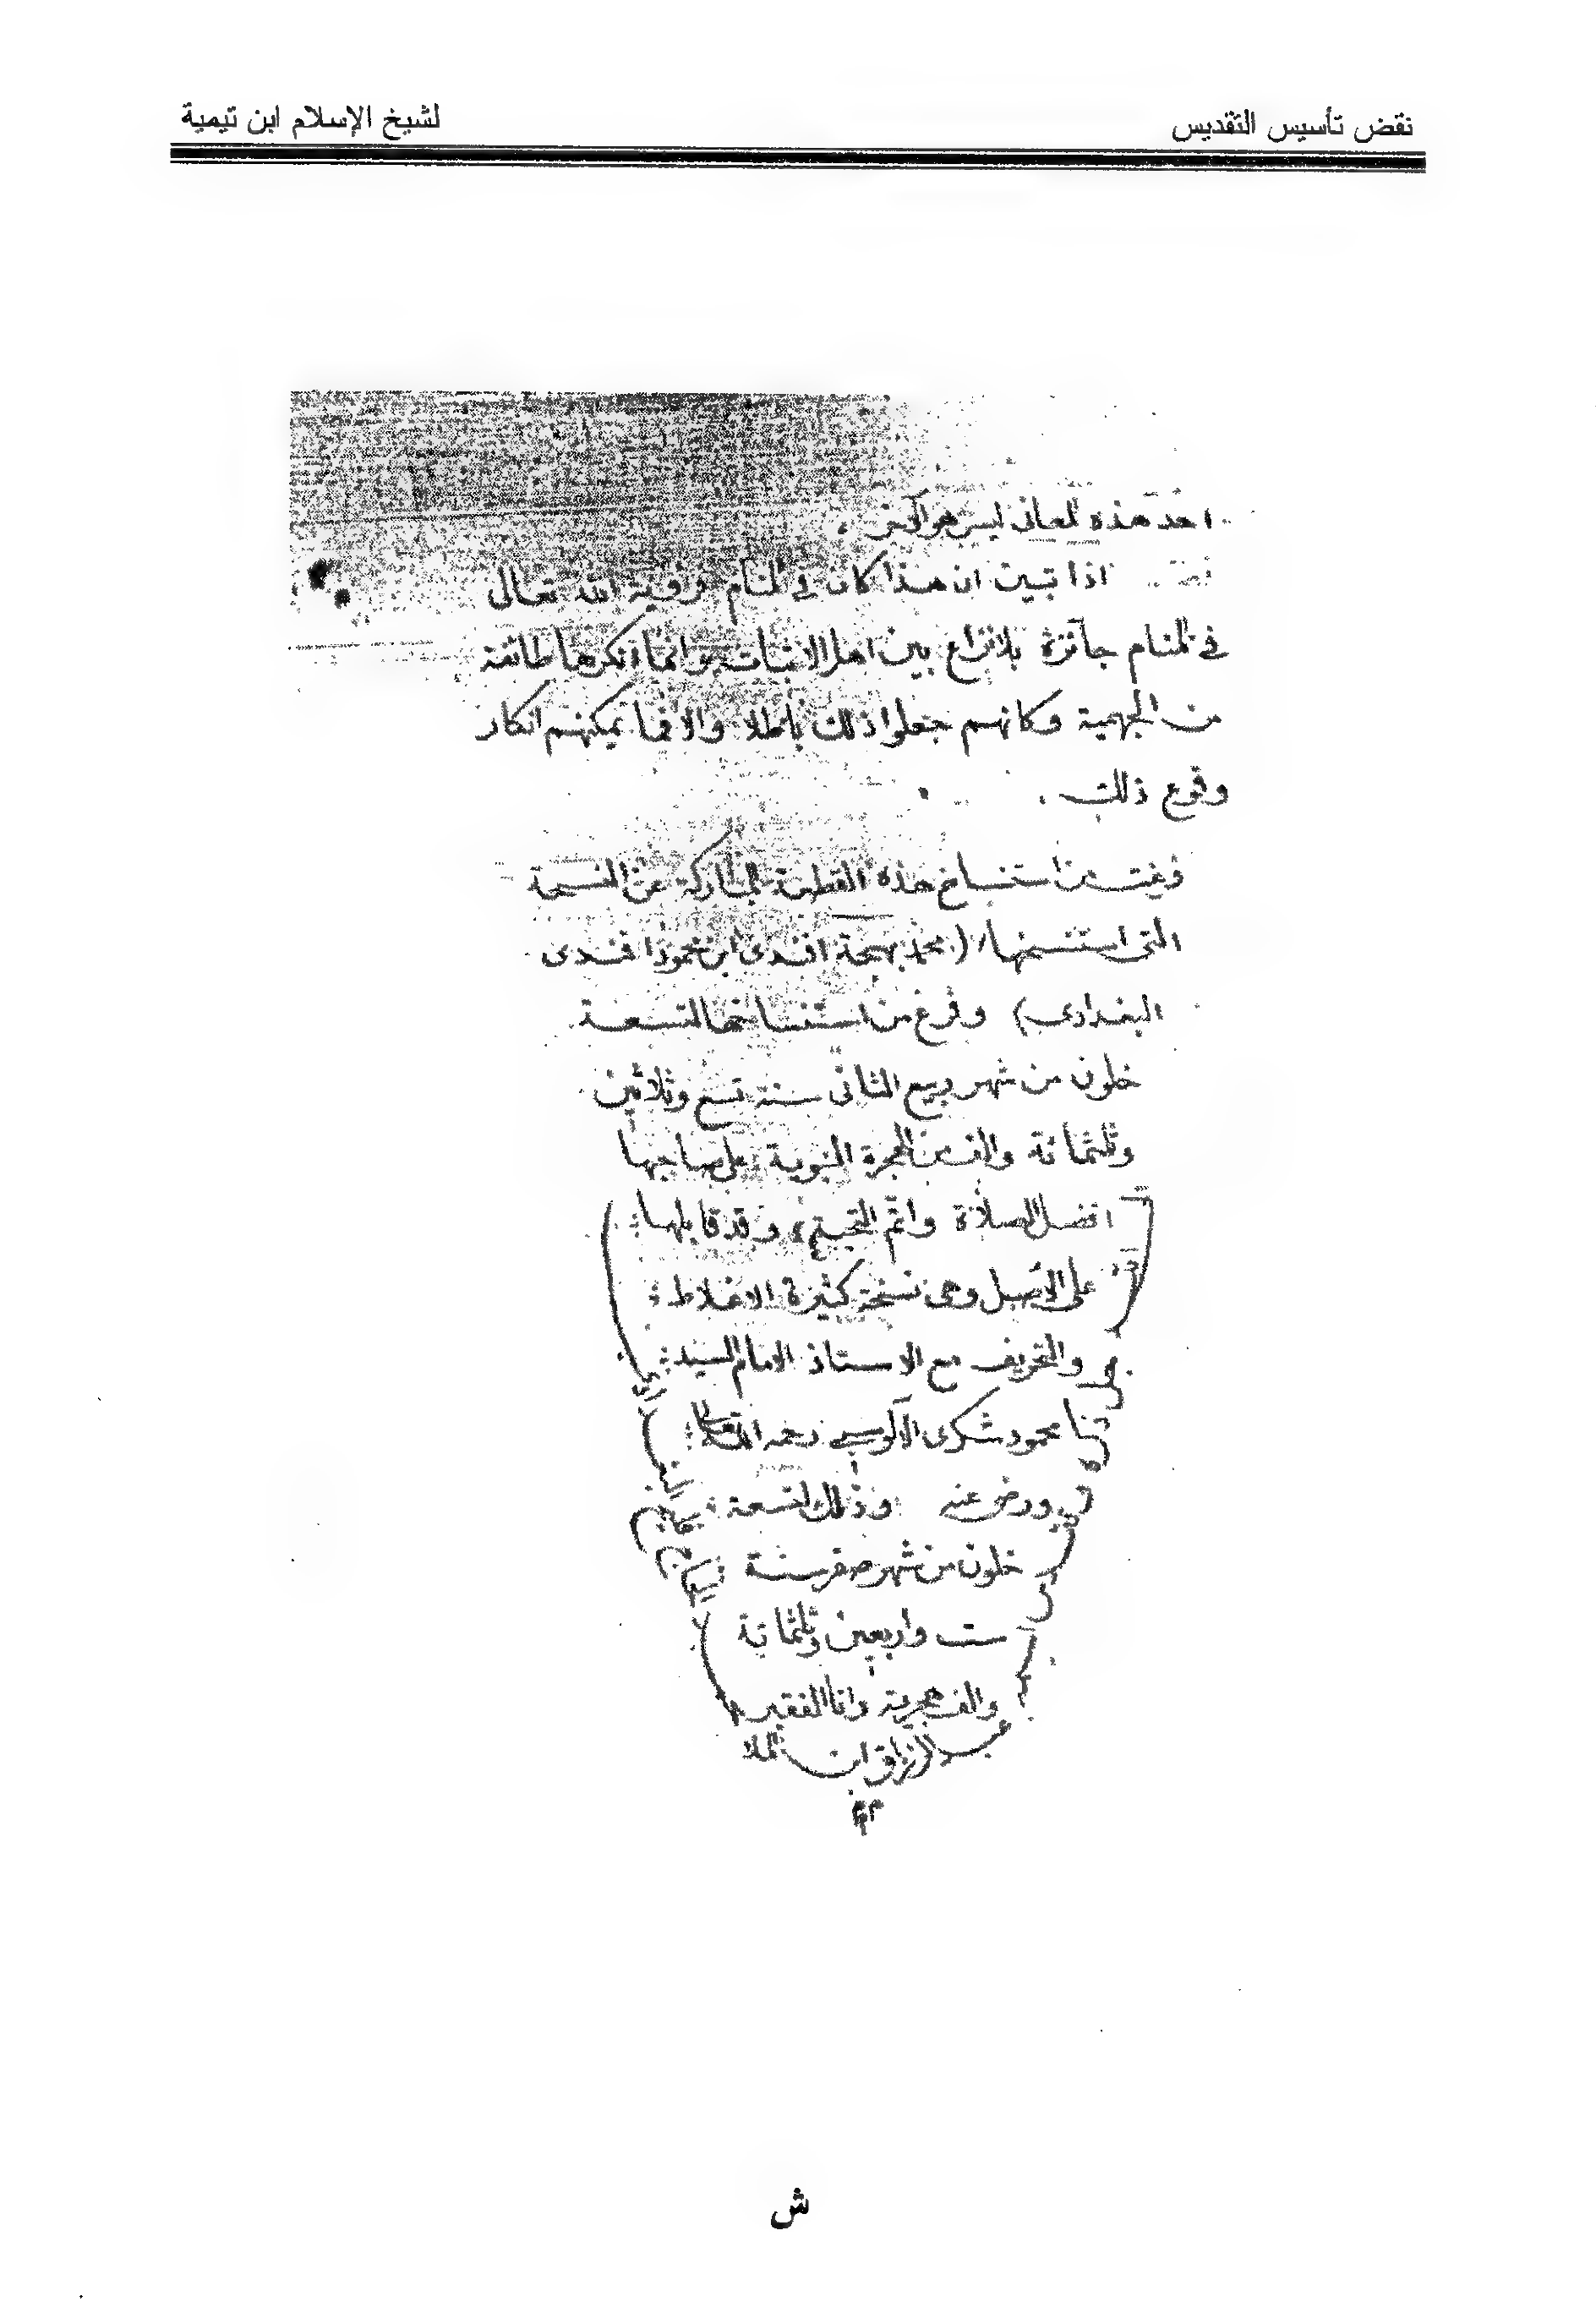 نقض تأسيس التقديس
لشيخ الإسلام ابن تيمية
احد هذه المعاني ليس هو الآخر .
اذا تبين ان هذا كان في المنام فرؤية الله تعالى
في المنام جائزة بلا نزاع بين اهل الاثبات وانما انكرها طائفة
من الجهمية وكانهم جعلوا ذلك باطلا والا فما يمكنهم انكار
وقوع ذلك .
فرغت من استنساخ هذه القطعة المباركة عن النسخة
التي استنسخها (محمد بهجة افندى ابن محمود افندى
البغدادي) وفرغ من استنساخها لتسعة
خلون من شهر ربيع الثاني سنة تسع وثلاثين
وثلثمائة والف من الهجرة النبوية على صاحبها
افضل الصلاة واتم التحية، وقد قابلها
على الاصل وهي نسخة كثيرة الاغلاط
والتحريف مع الاستاذ الامام السيد
محمود شكرى الآلوسي رحمه الله تعالى
ورضي عنه وذلك لتسعة
خلون من شهر صفر سنة
ست واربعين وثلثمائة
والف هجرية وانا الفقير
عبد الرزاق ابن الملا
ش